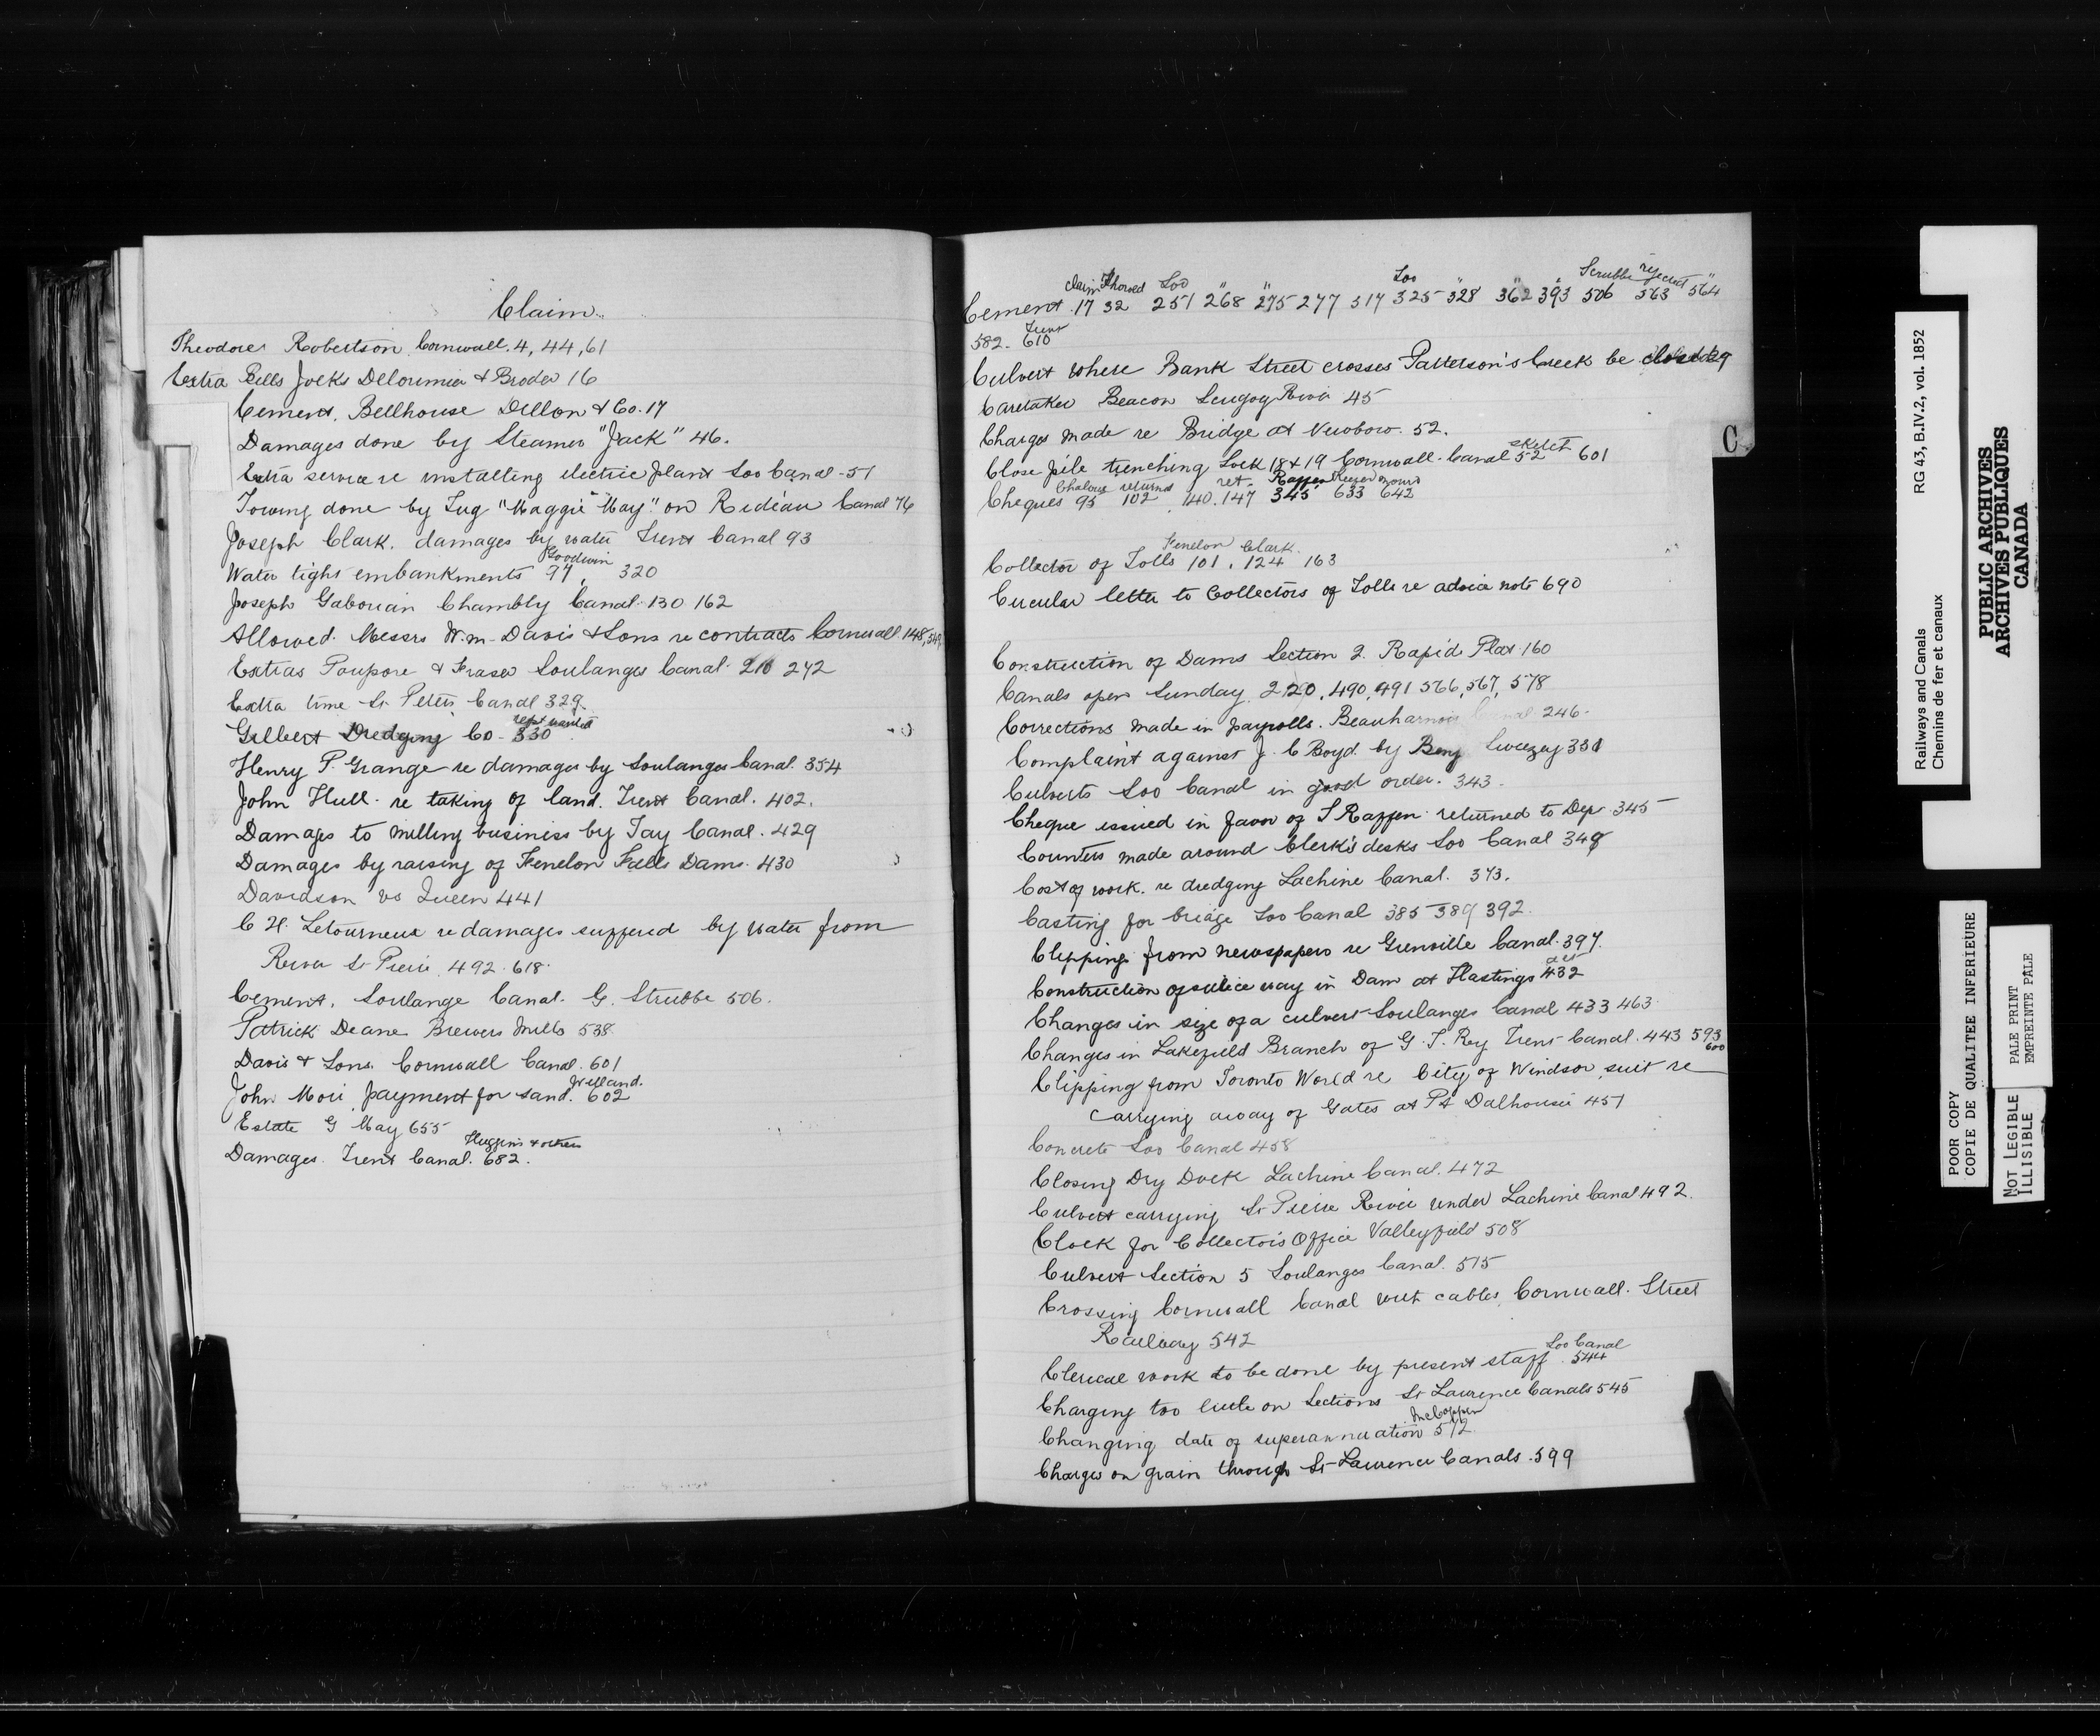 Claim
Theodore Robertson Cornwall. 4, 44, 61
Extra Bells Jocks Delorimier & Broder 16
Cement. Bellhouse Dillon & Co. 17
Damages done by Steamer "Jack" 46.
Extra service re installing electric plant Soo Canal - 51
Towing done by Tug "Maggie May" on Rideau Canal 76
Joseph Clark. damages by water Trent Canal 93
Goodwin
Water tight embankments 97, 320
Joseph Gabourian Chambly Canal. 130 162
Allowed. Messrs W. m. Davis & Sons re contracts Cornwall 148, 549
Extras Poupore & Fraser Soulanges Canal. 210 242
Extra time St Peters Canal 329.
rept wanted
Gilbert Dredging Co - 330
Henry P. Grange re damages by Soulanges Canal. 354
John Hull. re taking of land. Trent Canal. 402.
Damages to milling business by Tay Canal. 429
Damages by raising of Fenelon Falls Dams. 430
Davidson vs Queen 441
C H. Letourneux re damages suffered by water from
River St Pierre 492. 618.
Cement. Soulange Canal. G. Strubbe 506.
Patrick Deane Brewers Mills 538.
Davis & Sons. Cornwall Canal. 601
Welland.
John Mori payment for sand. 602
Estate G May 655
Huggins & others
Damages. Trent Canal. 682.
claim Thorold Soo " " Soo " " " Strubbe reject "
Cement. 17 32 251 268 275 277 317 325 328 362 393 506 563 564
Trent
582. 610
Culvert where Bank Street crosses Patterson's Creek be closed 29
Caretaker Beacon Scugog River 45
Charges made re Bridge at Newboro. 52.
sketch
Close pile trenching Lock 18 & 19 Cornwall Canal 52 601
returned ret. Raffen
Cheques 95 102, 140. 147 345 633 642
Fenelon Clark.
Collector of Tolls 101. 124 163
Circular letter to Collectors of Tolls re advice note 690
Construction of Dams Section 2. Rapid Plat 160
Canals open Sunday 220, 490, 491 566, 567, 578
Corrections made in payrolls. Beauharnois Canal 246.
Complaint against J. C Boyd. by Benj Swezey 331
Culverts Soo Canal in good order. 343.
Cheque issued in favor of S Raffen returned to Dep. 345
Counters made around Clerk's desks Soo Canal 349
Cost of work. re dredging Lachine Canal. 373.
Casting for bridge Soo Canal 385 389 392.
Clipping from newspapers re Grenville Canal. 397.
Construction of sluice way in Dam at Hastings 432
Changes in size of a culvert Soulanges Canal 433 463.
Changes in Lakefield Branch of G. T. Ry Trent Canal. 443 593
600
Clipping from Toronto World re City of Windsor suit re
carrying away of Gates at Pt Dalhousie 451
Concrete Soo Canal 458
Closing Dry Dock Lachine Canal. 472
Culvert carrying St Pierre River under Lachine Canal 492.
Clock for Collector's Office Valleyfield 508
Culvert Section 5 Soulanges Canal. 515
Crossing Cornwall Canal with cables Cornwall. Street
Railway 542
Soo Canal
Clerical work to be done by present staff. 544
Charging too little on Sections St Lawrence Canals 545
Changing date of superannuation 572
Charges on grain through St Lawrence Canals. 599
C
RG 43, B.IV.2, vol. 1852
Railways and Canals
Chemins de fer et canaux
PUBLIC ARCHIVES
ARCHIVES PUBLIQUES
CANADA
POOR COPY
COPIE DE QUALITEE INFERIEURE
PALE PRINT
EMPREINTE PALE
NOT LEGIBLE
ILLISIBLE